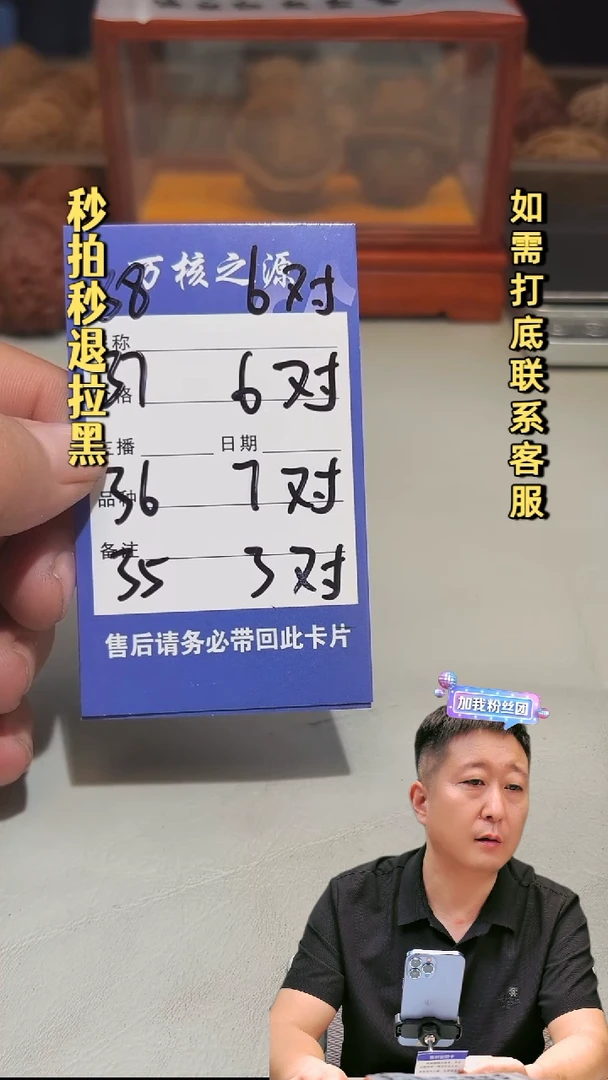 秒拍秒退拉黑
如需打底联系客服
万核之源
38 6对
称
37 6对
格
主播 日期
36 7对
品种
备注
35 3对
售后请务必带回此卡片
加我粉丝团